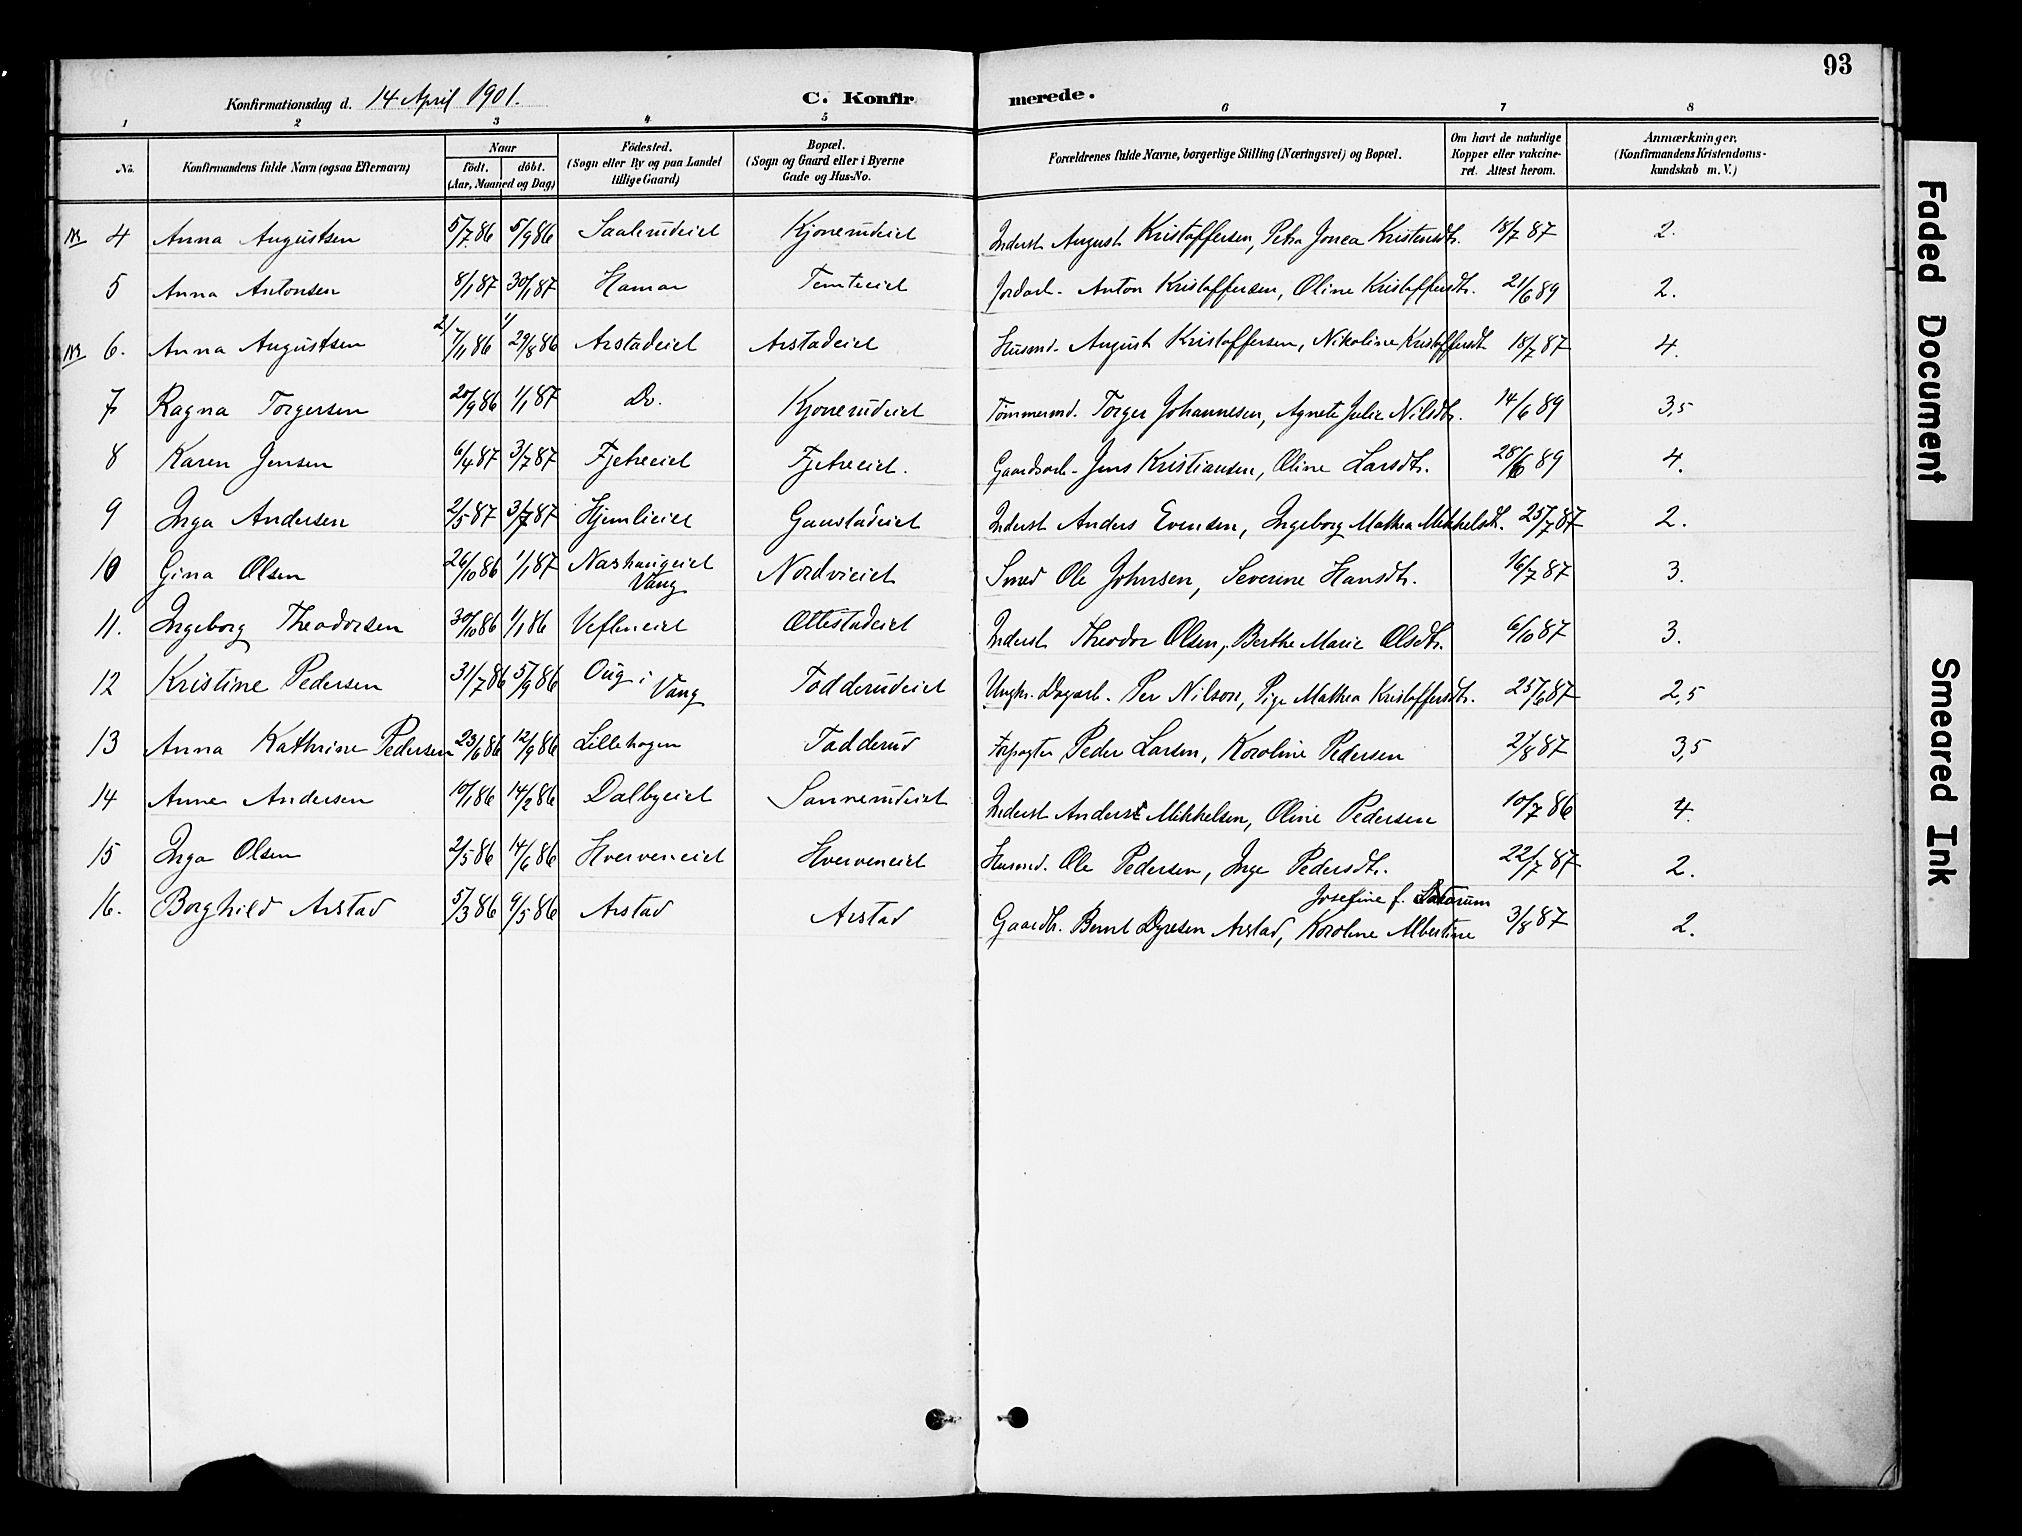 93
Konfirmationsdag d. 14 April 1901. C. Konfirmerede.
1 2 3 4 5 6 7 8
No. Konfirmandens fulde Navn (ogsaa Efternavn) Naar födt. döbt. (Aar, Maaned og Dag) Födested. (Sogn eller By og paa Landet tillige Gaard) Bopæl. (Sogn og Gaard eller i Byerne Gade og Hus-No. Forældrenes fulde Navne, borgerlige Stilling (Næringsvei) og Bopæl. Om havt de naturlige Kopper eller vakcineret. Attest herom. Anmærkninger. (Konfirmandens Kristendomskundskab m. V.)
4 Anna Augustsen 5/7 86 5/9 86 Saalerudeiet Kjonerudeiet Inderst August Kristoffersen, Petra Jonea Kristensdtr. 18/7 87 2.
5 Anna Antonsen 8/1 87 30/1 87 Hamar Tomteeiet Jordarb. Anton Kristoffersen, Oline Kristoffersdtr. 21/6 89 2.
6. Anna Augustsen 7/11 86 29/8 86 Arstadeiet Arstadeiet Husmd. August Kristoffersen, Nikoline Kristoffersdtr 18/7 87 4.
7 Ragna Torgersen 20/9 86 1/1 87 Do. Kjonerudeiet Tømmermd. Torger Johannesen, Agnete Julie Nilsdtr. 14/6 89 3,5
8 Karen Jensen 6/4 87 3/7 87 Fjetreeiet Fjetreeiet. Gaardsarb. Jens Kristiansen, Oline Larsdtr. 28/6 89 4.
9 Inga Andersen 2/5 87 3/7 87 Hjemlieiet Gaustadeiet Inderst Anders Evensen, Ingeborg Mathea Mikkelsdtr. 25/7 87 2.
10 Gina Olsen 26/10 86 1/1 87 Nashaugeiet Vang Nordvieiet Smed Ole Johnsen, Severine Hansdtr. 16/7 87 3.
11. Ingeborg Theodorsen 30/10 86 1/1 86 Vefleneiet Ottestadeiet Inderst Theodor Olsen, Berthe Marie Olsdtr. 6/10 87 3.
12 Kristine Pedersen 31/7 86 5/9 86 Oug i Vang Todderudeiet Ungkr. Dagarb. Per Nilsen, Pige Mathea Kristoffersdtr. 25/6 87 2,5
13 Anna Kathrine Pedersen 23/6 86 12/9 86 Lillehagen Tadderud Forpagter Peder Larsen, Karoline Pedersen 2/8 87 3,5
14 Anne Andersen 10/1 86 14/2 86 Dalbyeiet Sannerudeiet Inderst Anders Mikkelsen, Oline Pedersen 10/7 86 4.
15 Inga Olsen 2/5 86 14/6 86 Hverveneiet Hverveneiet Husmd. Ole Pedersen, Inge Pedersdtr. 22/7 87 2.
16. Borghild Arstad 5/3 86 9/5 86 Arstad Arstad Gaardbr. Bernt Dyresen Arstad, Karoline Albertine Josefine f. 3/8 87 2.
Faded Document
Smeared Ink